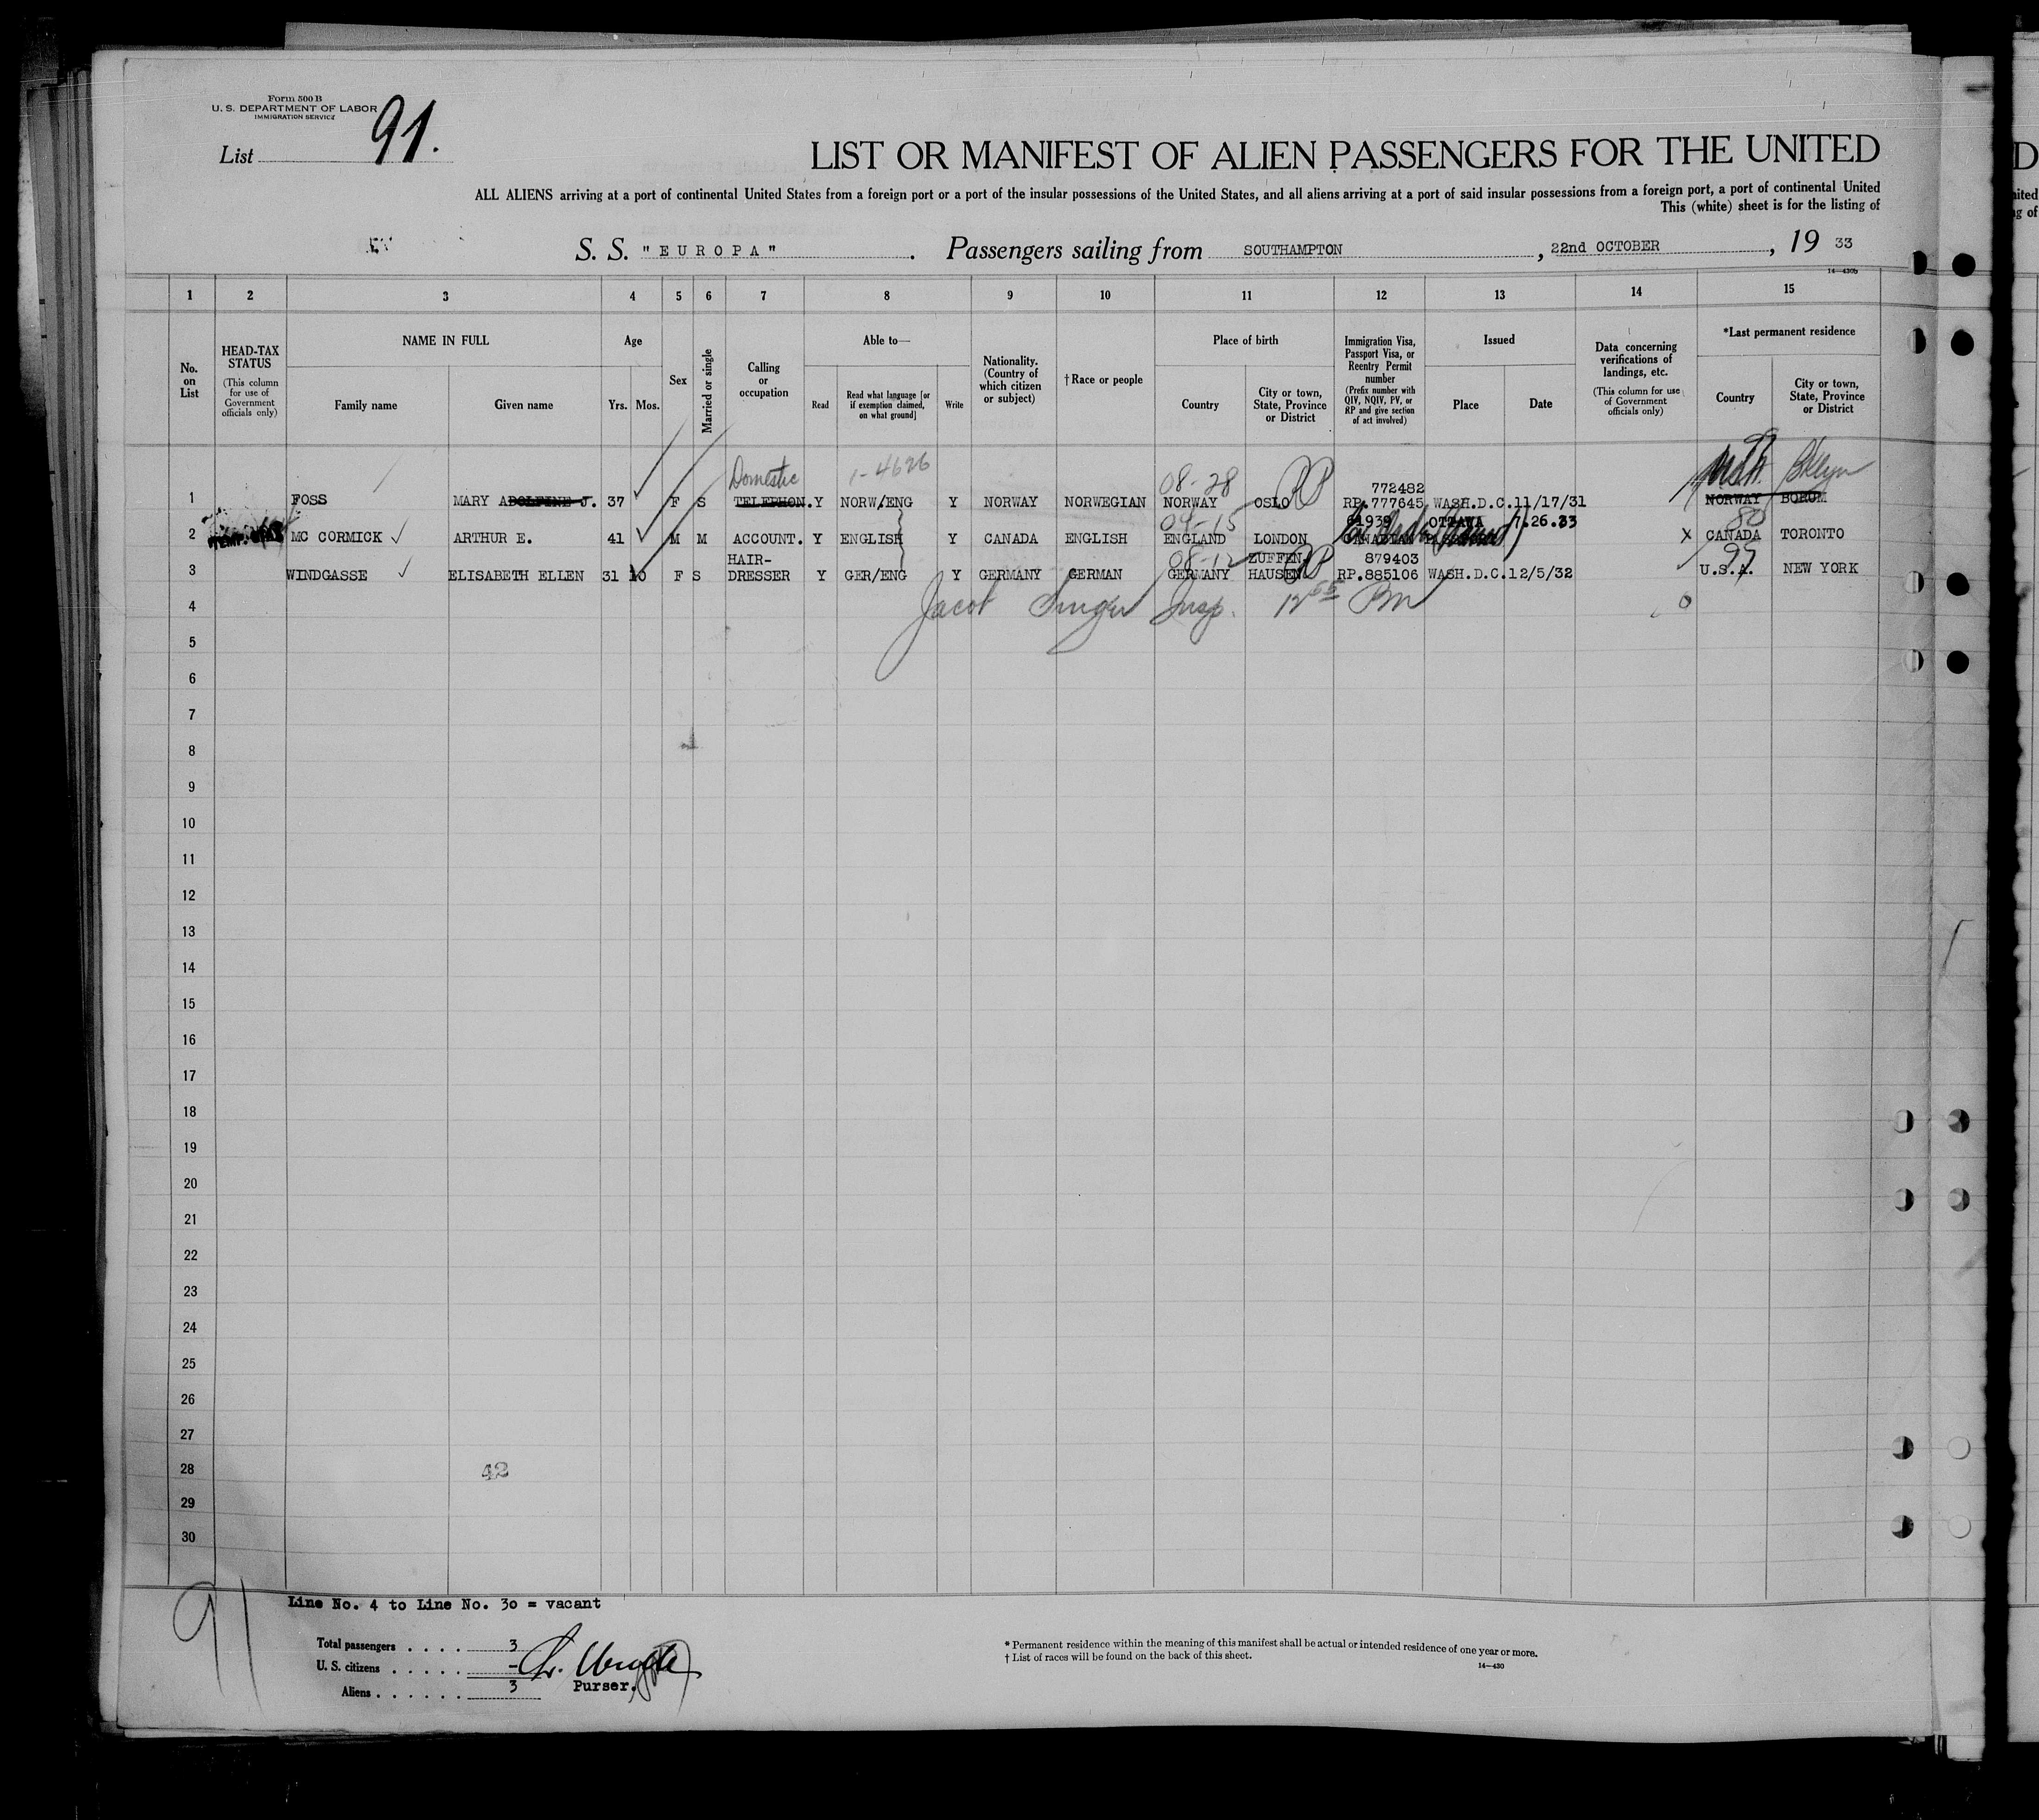 Form 500 B
U. S. DEPARTMENT OF LABOR
IMMIGRATION SERVICE
List 91.
LIST OR MANIFEST OF ALIEN PASSENGERS FOR THE UNITED
ALL ALIENS arriving at a port of continental United States from a foreign port or a port of the insular possessions of the United States, and all aliens arriving at a port of said insular possessions from a foreign port, a port of continental United
This (white) sheet is for the listing of
S. S. "EUROPA". Passengers sailing from SOUTHAMPTON, 22nd OCTOBER, 19 33
14—430b
1 2 3 4 5 6 7 8 9 10 11 12 13 14 15
No. on List
HEAD-TAX STATUS (This column for use of Government officials only)
NAME IN FULL
Family name Given name
Age
Yrs. Mos.
Sex
Married or single
Calling or occupation
Able to—
Read
Read what language [or if exemption claimed, on what ground]
Write
Nationality. (Country of which citizen or subject)
†Race or people
Place of birth
Country
City or town, State, Province or District
Immigration Visa, Passport Visa, or Reentry Permit number (Prefix number with QIV, NQIV, PV, or RP and give section of act involved)
Issued
Place Date
Data concerning verifications of landings, etc. (This column for use of Government officials only)
*Last permanent residence
Country
City or town, State, Province or District
Domestic 1-4626 08-28 772482 99 Bklyn
1 FOSS MARY ADOLFINE J. 37 F S TELEPHON. Y NORW/ENG Y NORWAY NORWEGIAN NORWAY OSLO RP.777645 WASH.D.C. 11/17/31 NORWAY BORUM
04-15 61939 OTTAWA 7.26.33 80
2 MC CORMICK ARTHUR E. 41 M M ACCOUNT. Y ENGLISH Y CANADA ENGLISH ENGLAND LONDON CANADIAN X CANADA TORONTO
HAIR- 08-12 ZUFFEN 879403 99
3 WINDGASSE ELISABETH ELLEN 31 10 F S DRESSER Y GER/ENG Y GERMANY GERMAN GERMANY HAUSEN RP.885106 WASH.D.C. 12/5/32 U.S.A. NEW YORK
4 Jacob Singer Insp. 12 PM 0
5
6
7
8
9
10
11
12
13
14
15
16
17
18
19
20
21
22
23
24
25
26
27
28 42
29
30
91
Line No. 4 to Line No. 30 = vacant
Total passengers . . . . 3
U. S. citizens . . . . . -
Aliens . . . . . . 3
Purser.
* Permanent residence within the meaning of this manifest shall be actual or intended residence of one year or more.
† List of races will be found on the back of this sheet.
14—430